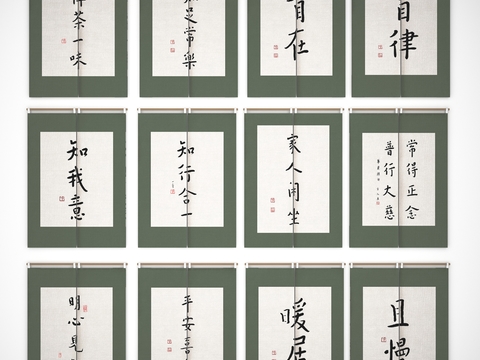 茶一味
足常樂
自在
自律
知我意
知行合一
家人闲坐
常得正念
普行大慈
明心見
平安喜
暖居
且慢